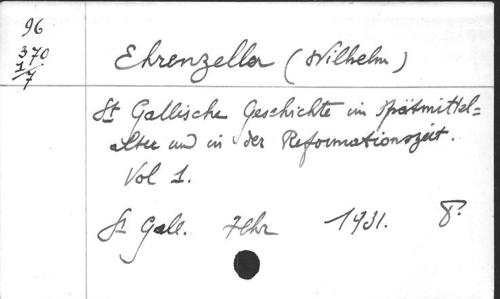 96
370
1/7
Ehrenzeller (Wilhelm)
St Gallische Geschichte im Spätmittel=
alter und in der Reformationszeit.
Vol 1.
St Gall. Fehr 1931. 8º